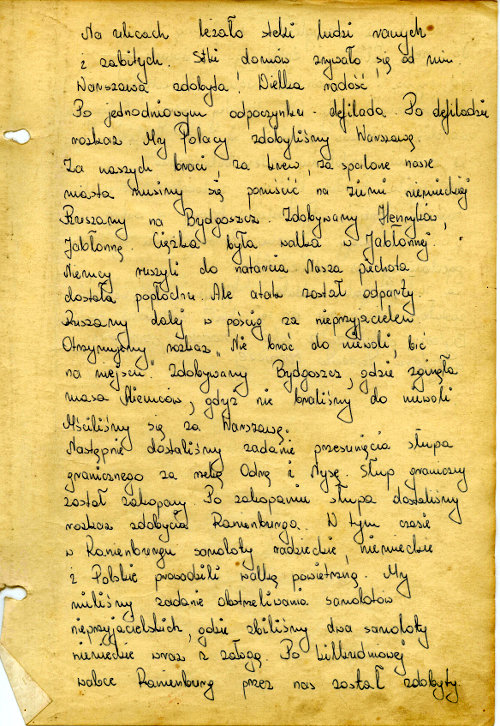 Na ulicach leżało stetki ludzi rannych
i zabitych. Setki domów zrywało się od min.
Warszawa zdobyta! Wielka radość!
Po jednodniowym odpoczynku - defilada. Po defiladzie
rozkaz. My Polacy zdobyliśmy Warszawę.
Za naszych braci, za krew, za spalone nasze
miasta musimy się pomścić na ziemi niemieckiej
Ruszamy na Bydgoszcz. Zdobywamy Henryków,
Jabłonnę. Ciężka była walka w Jabłonnej.
Niemcy ruszyli do natarcia. Nasza piechota
dostała popłochu. Ale atak został odparty.
Ruszamy dalej w pościg za nieprzyjacielem
Otrzymujemy rozkaz „Nie brać do niewoli, bić
na miejscu". Zdobywamy Bydgoszcz, gdzie zginęła
masa Niemców, gdyż nie braliśmy do niewoli
Mściliśmy się za Warszawę.
Następnie dostaliśmy zadanie przesunięcia słupa
granicznego za rzekę Odrę i Nysę. Słup graniczny
został zakopany. Po zakopaniu słupa dostaliśmy
rozkaz zdobycia Ranienburga. W tym czasie
w Ranienburgu samoloty radzieckie, niemieckie
i Polskie prowadzili walkę powietrzną. My
mieliśmy zadanie obstrzeliwania samolotów
nieprzyjacielskich, gdzie zbiliśmy dwa samoloty
niemieckie wraz z załogą. Po kilkudniowej
walce Ranienburg przez nas został zdobyty.